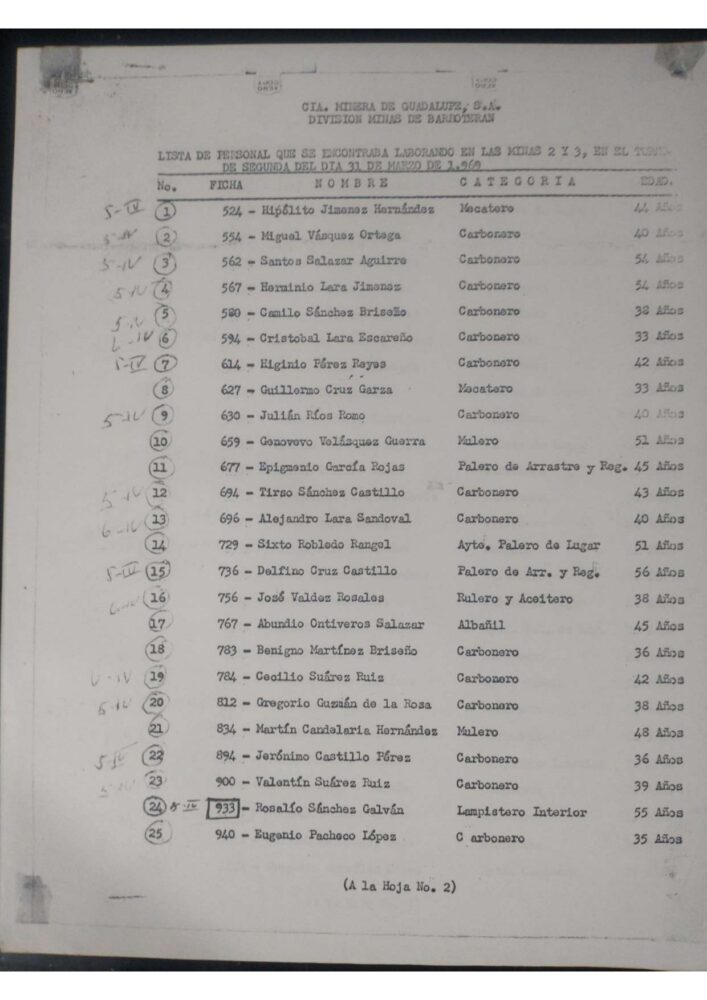 CIA. MINERA DE GUADALUPE, S.A.
DIVISION MINAS DE BARROTERAN
LISTA DE PERSONAL QUE SE ENCONTRABA LABORANDO EN LAS MINAS 2 Y 3, EN EL TURNO
DE SEGUNDA DEL DIA 31 DE MARZO DE 1.969
No. FICHA NOMBRE CATEGORIA EDAD.
5-IV 1 524 - Hipólito Jimenez Hernández Mecatero 44 Años
5-IV 2 554 - Miguel Vásquez Ortega Carbonero 40 Años
5-IV 3 562 - Santos Salazar Aguirre Carbonero 54 Años
5-IV 4 567 - Herminio Lara Jimenez Carbonero 54 Años
5-IV 5 580 - Camilo Sánchez Briseño Carbonero 38 Años
6-IV 6 594 - Cristobal Lara Escareño Carbonero 33 Años
5-IV 7 614 - Higinio Pérez Reyes Carbonero 42 Años
8 627 - Guillermo Cruz Garza Mecatero 33 Años
5-IV 9 630 - Julián Ríos Romo Carbonero 40 Años
10 659 - Genovevo Velásquez Guerra Mulero 51 Años
11 677 - Epigmenio García Rojas Palero de Arrastre y Reg. 45 Años
5-IV 12 694 - Tirso Sánchez Castillo Carbonero 43 Años
6-IV 13 696 - Alejandro Lara Sandoval Carbonero 40 Años
14 729 - Sixto Robledo Rangel Ayte. Palero de Lugar 51 Años
5-IV 15 736 - Delfino Cruz Castillo Palero de Arr. y Reg. 56 Años
6-IV 16 756 - José Valdez Rosales Rulero y Aceitero 38 Años
17 767 - Abundio Ontiveros Salazar Albañil 45 Años
18 783 - Benigno Martínez Briseño Carbonero 36 Años
19 784 - Cecilio Suárez Ruiz Carbonero 42 Años
5-IV 20 812 - Gregorio Guzmán de la Rosa Carbonero 38 Años
21 834 - Martín Candelaria Hernández Mulero 48 Años
5-IV 22 894 - Jerónimo Castillo Pérez Carbonero 36 Años
5-IV 23 900 - Valentín Suárez Ruiz Carbonero 39 Años
24 5-IV 933 - Rosalío Sánchez Galván Lampistero Interior 55 Años
25 940 - Eugenio Pacheco López C arbonero 35 Años
(A la Hoja No. 2)